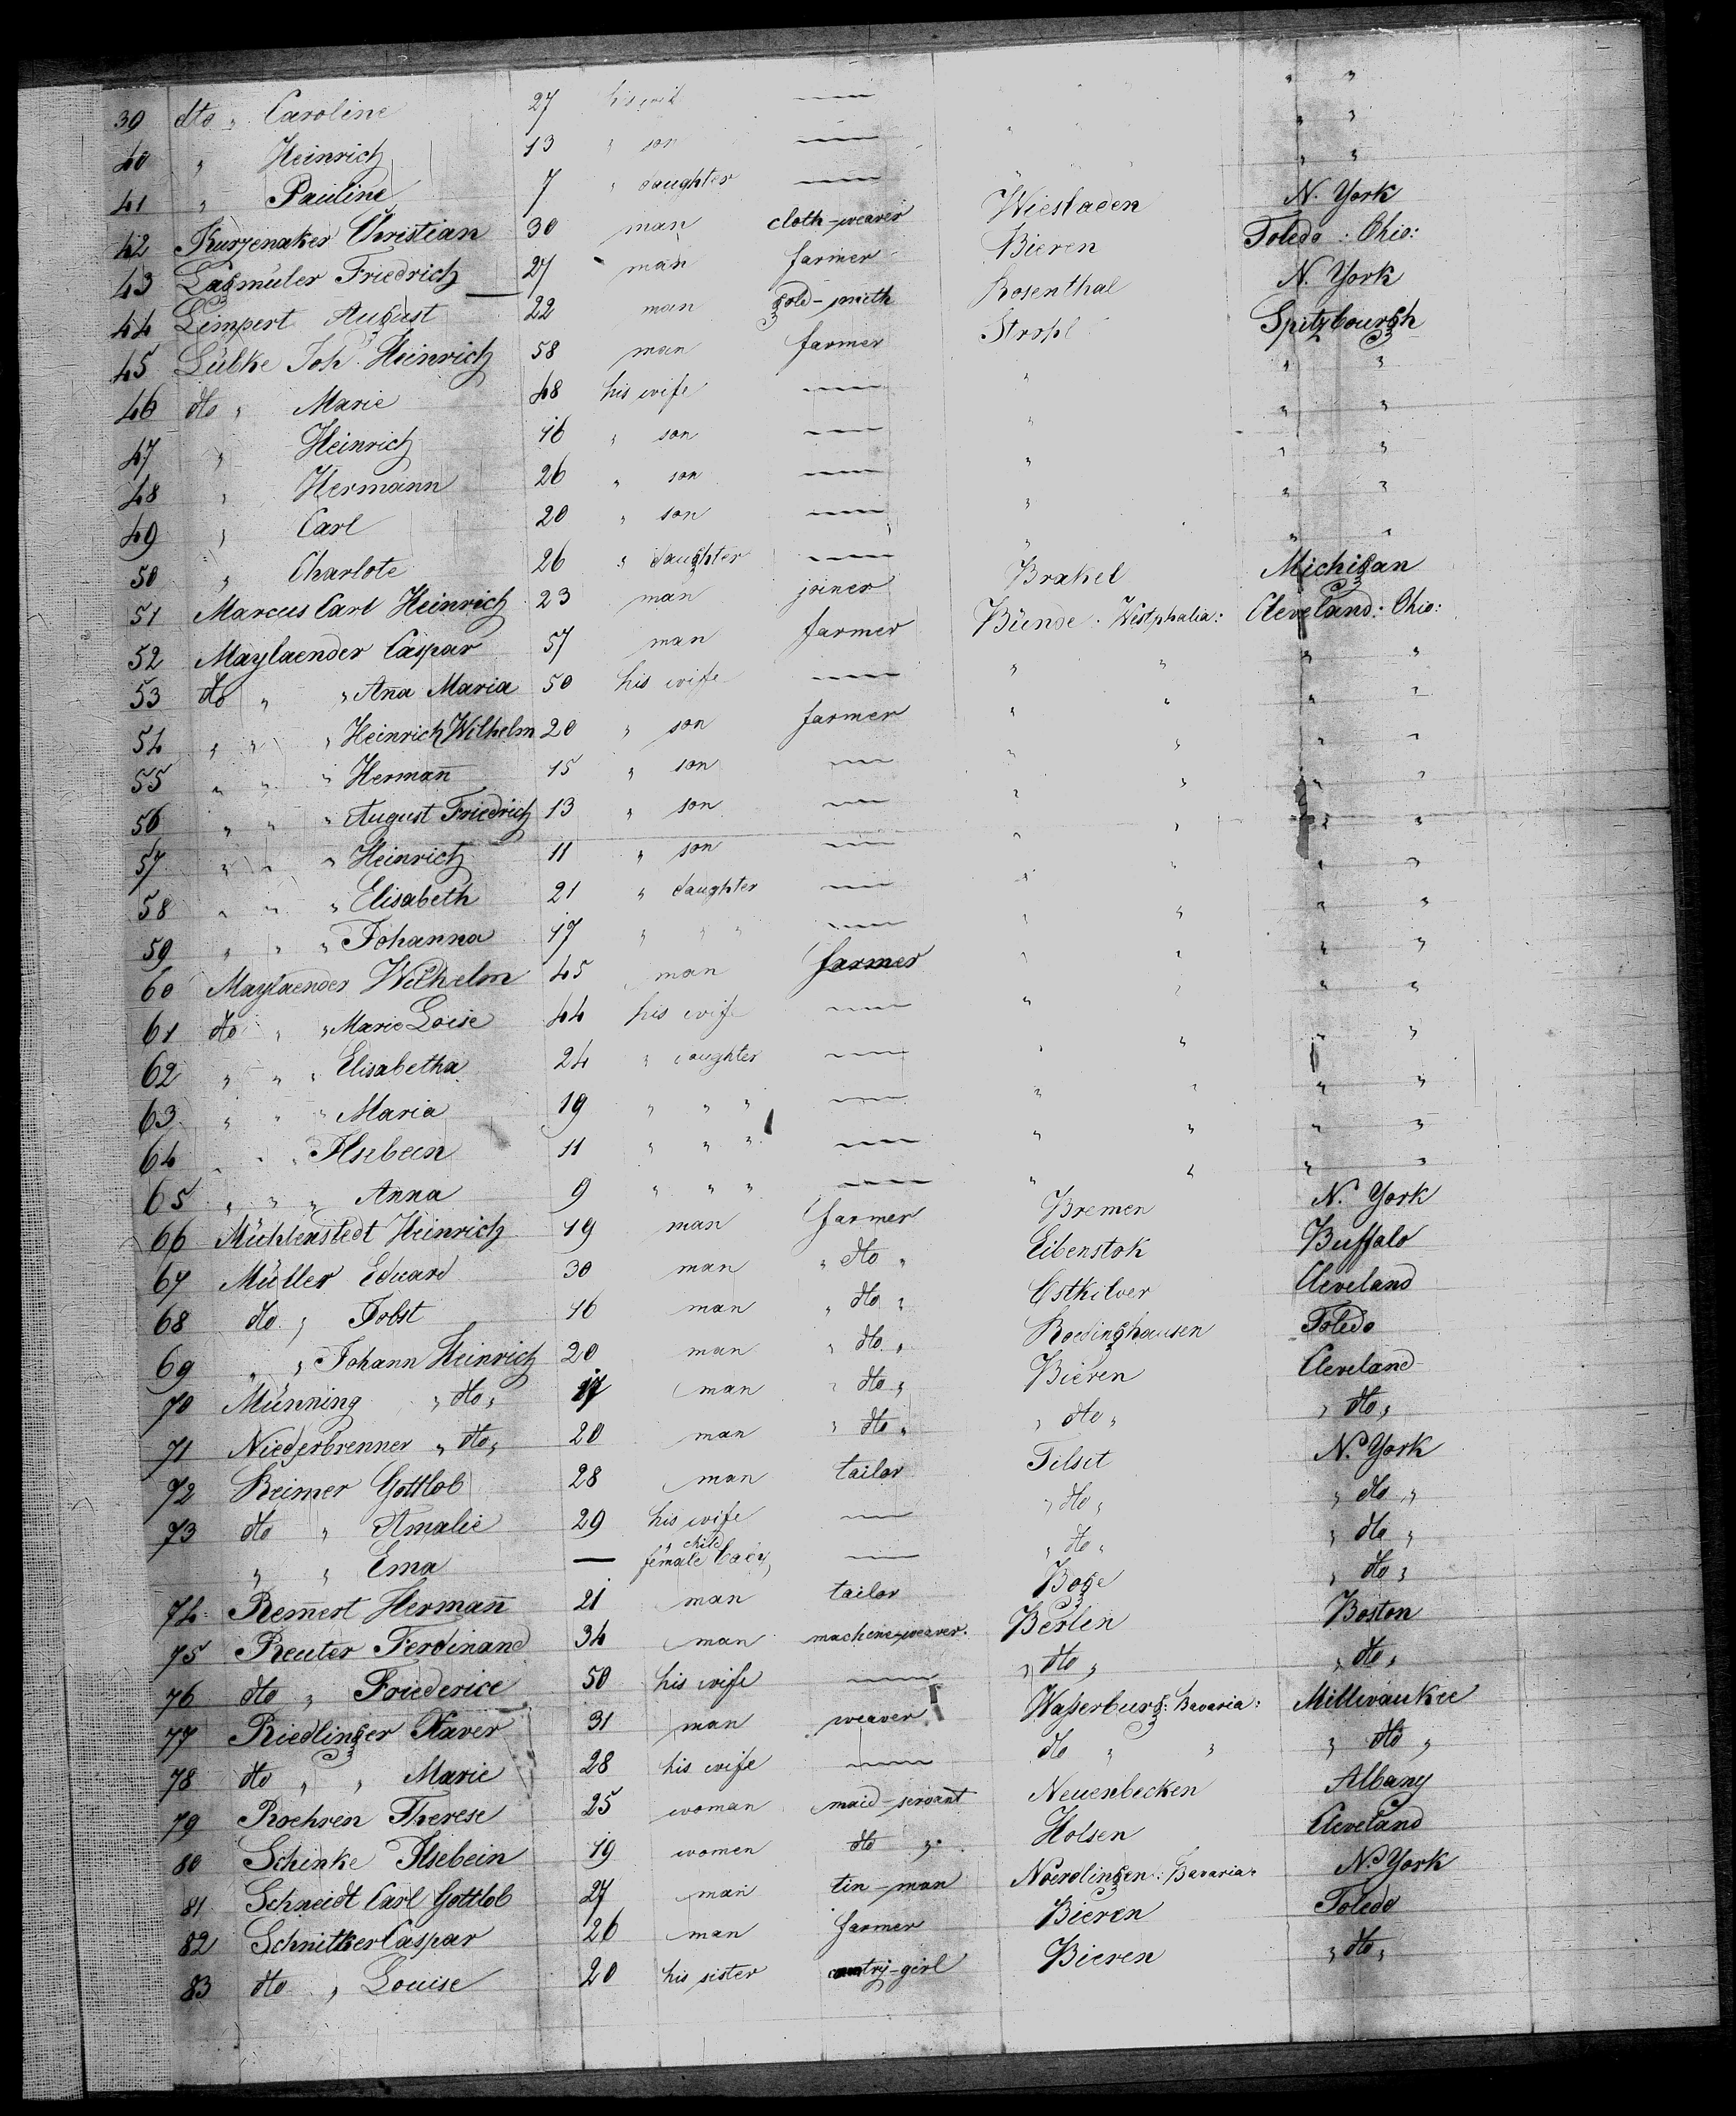 39 dto „ Caroline 27 his wife — „ „
40 „ Heinrich 13 „ son — „ „ „
41 „ Pauline 7 „ daughter — „ „ „
42 Kurzenaker Christian 30 man cloth-weaver Wiesbaden N. York
43 Lagmüler Friedrich 27 man farmer Bieren Toledo : Ohio:
44 Limpert August 22 man gold-smith Rosenthal N. York
45 Lülke Joh. Heinrich 58 man farmer Spitzbourgh
46 dto „ Marie 48 his wife — „ „ „
47 „ Heinrich 16 „ son — „ „ „
48 „ Hermann 26 „ son — „ „ „
49 „ Carl 20 „ son — „ „ „
50 „ Charlote 26 „ daughter — „ „ „
51 Marcus Carl Heinrich 23 man joiner Brakel Michigan
52 Maylaender Caspar 57 man farmer Bünde : Westphalia: Cleveland: Ohio:
53 dto „ „ Ana̅ Maria 50 his wife — „ „ „ „
54 „ „ „ Heinrich Wilhelm 20 „ son farmer „ „ „ „
55 „ „ „ Herman̅ 15 „ son — „ „ „ „
56 „ „ „ August Friedrich 13 „ son — „ „ „ „
57 „ „ „ Heinrich 11 „ son — „ „ „ „
58 „ „ „ Elisabeth 21 „ daughter — „ „ „ „
59 „ „ „ Johanna 17 „ „ „ — „ „ „ „
60 Maylaender Wilhelm 45 man farmer „ „ „ „
61 dto „ „ Marie Loise 44 his wife — „ „ „ „
62 „ „ „ Elisabetha 24 „ daughter — „ „ „ „
63 „ „ „ Maria 19 „ „ „ — „ „ „ „
64 „ „ „ Ilsebein 11 „ „ „ — „ „ „ „
65 „ „ „ Anna 9 „ „ „ — „ „ „ „
66 Mühlenstedt Heinrich 19 man farmer Bremen N. York
67 Müller Eduard 30 man „ dto „ Eibenstok Buffalo
68 dto „ Jobst 16 man „ dto „ Ostkilver Cleveland
69 „ „ Johann Heinrich 20 man „ dto „ Roedinghausen Toledo
70 Münning „ dto „ 17 man „ dto „ Bieren Cleveland
71 Niederbrenner „ dto „ 20 man „ dto „ „ dto „ „ dto „
72 Reimer Gottlob 28 man tailor Tilsit N. York
73 dto „ Amalie 29 his wife — „ dto „ „ dto „
„ „ Ema — „ child female baby — „ dto „ „ dto „
74 Rem̅ert Herman̅ 21 man tailor Boge „ dto „
75 Reuter Ferdinand 34 man machine-weaver Berlin Boston
76 dto „ Friederice 50 his wife — „ dto „ „ dto „
77 Riedlinger Xaver 31 man weaver Waßerburg: Bavaria: Millwaukie
78 dto „ „ Marie 28 his wife — dto „ „ „ dto „
79 Roehren Therese 25 woman maid-servant Neuenbecken Albany
80 Schinke Ilsebein 19 women dto „ Holsen Cleveland
81 Schneidt Carl Gottlob 27 man tin-man Noerdlingen: Bavaria: N. York
82 Schnitker Caspar 26 man farmer Bieren Toledo
83 dto „ Louise 20 his sister cuntrj-girl Bieren „ dto „